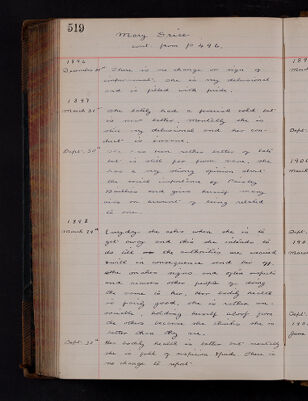 519
Mary Grice
cont from p 496.
1896
December 30th There is no change or sign of
improvement. She is very delusional
and is filled with pride.
1897
March 31st She lately had a general cold but
is now better. Mentally she is
still very delusional and her con-
duct is insane.
Sept. 30th She has been rather better of late
but is still far from sane. She
has a very strong opinion about
the social importance of
and gives herself many
airs on account of being related
to one.
1898
March 29th Everyday she asks when she is to
get away and this she intends to
do till the authorities are accused
in consequence send her off.
She makes signs and often
and accuses other people of doing
the same to her. Her bodily health
is fairly good, she is rather un-
sociable, holding herself aloof from
the others because she thinks she is
better than they are.
Sept. 30th Her bodily health is better but mentally
she is full of . There is
no change to report.
189
March
Sept
190
March
Sept.
190
Marc
Sept.
190
June